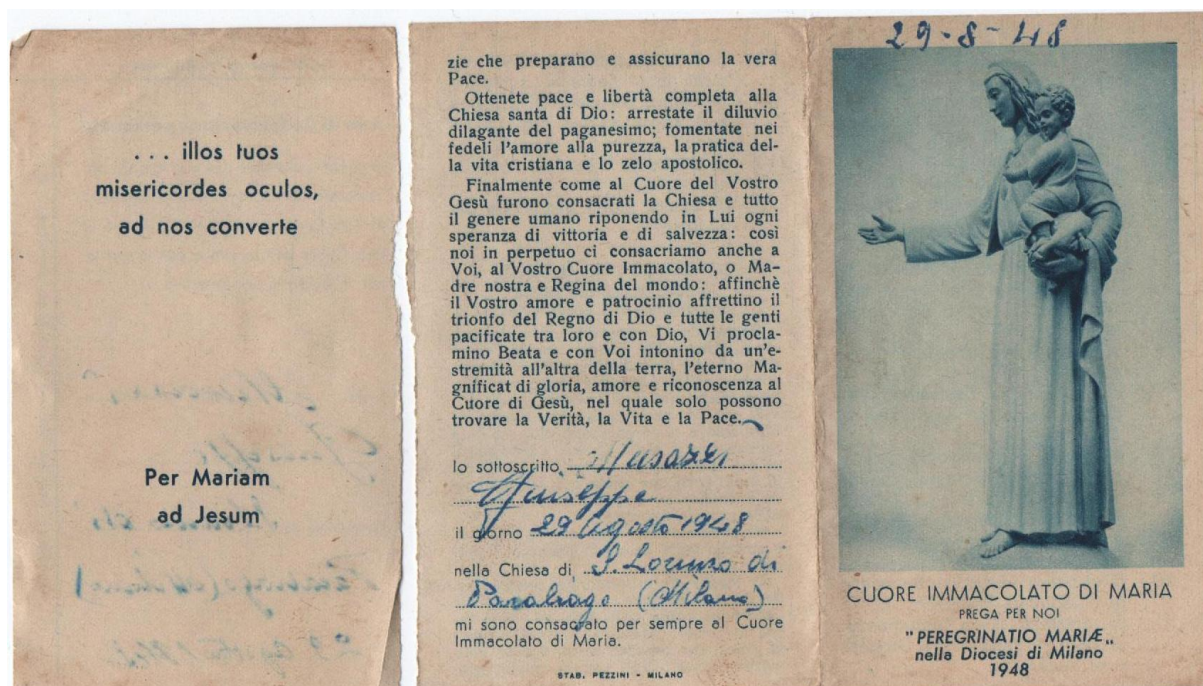 ... illos tuos
misericordes oculos,
ad nos converte
Per Mariam
ad Jesum
zie che preparano e assicurano la vera
Pace.
Ottenete pace e libertà completa alla
Chiesa santa di Dio: arrestate il diluvio
dilagante del paganesimo; fomentate nei
fedeli l'amore alla purezza, la pratica del-
la vita cristiana e lo zelo apostolico.
Finalmente come al Cuore del Vostro
Gesù furono consacrati la Chiesa e tutto
il genere umano riponendo in Lui ogni
speranza di vittoria e di salvezza: così
noi in perpetuo ci consacriamo anche a
Voi, al Vostro Cuore Immacolato, o Ma-
dre nostra e Regina del mondo: affinchè
il Vostro amore e patrocinio affrettino il
trionfo del Regno di Dio e tutte le genti
pacificate tra loro e con Dio, Vi procla-
mino Beata e con Voi intonino da un'e-
stremità all'altra della terra, l'eterno Ma-
gnificat di gloria, amore e riconoscenza al
Cuore di Gesù, nel quale solo possono
trovare la Verità, la Vita e la Pace.
Io sottoscritto
Giuseppe
il giorno 29 Agosto 1948
nella Chiesa di S. Lorenzo di
Parabiago (Milano)
mi sono consacrato per sempre al Cuore
Immacolato di Maria.
STAB. PEZZINI - MILANO
29-8-48
CUORE IMMACOLATO DI MARIA
PREGA PER NOI
"PEREGRINATIO MARIÆ„
nella Diocesi di Milano
1948